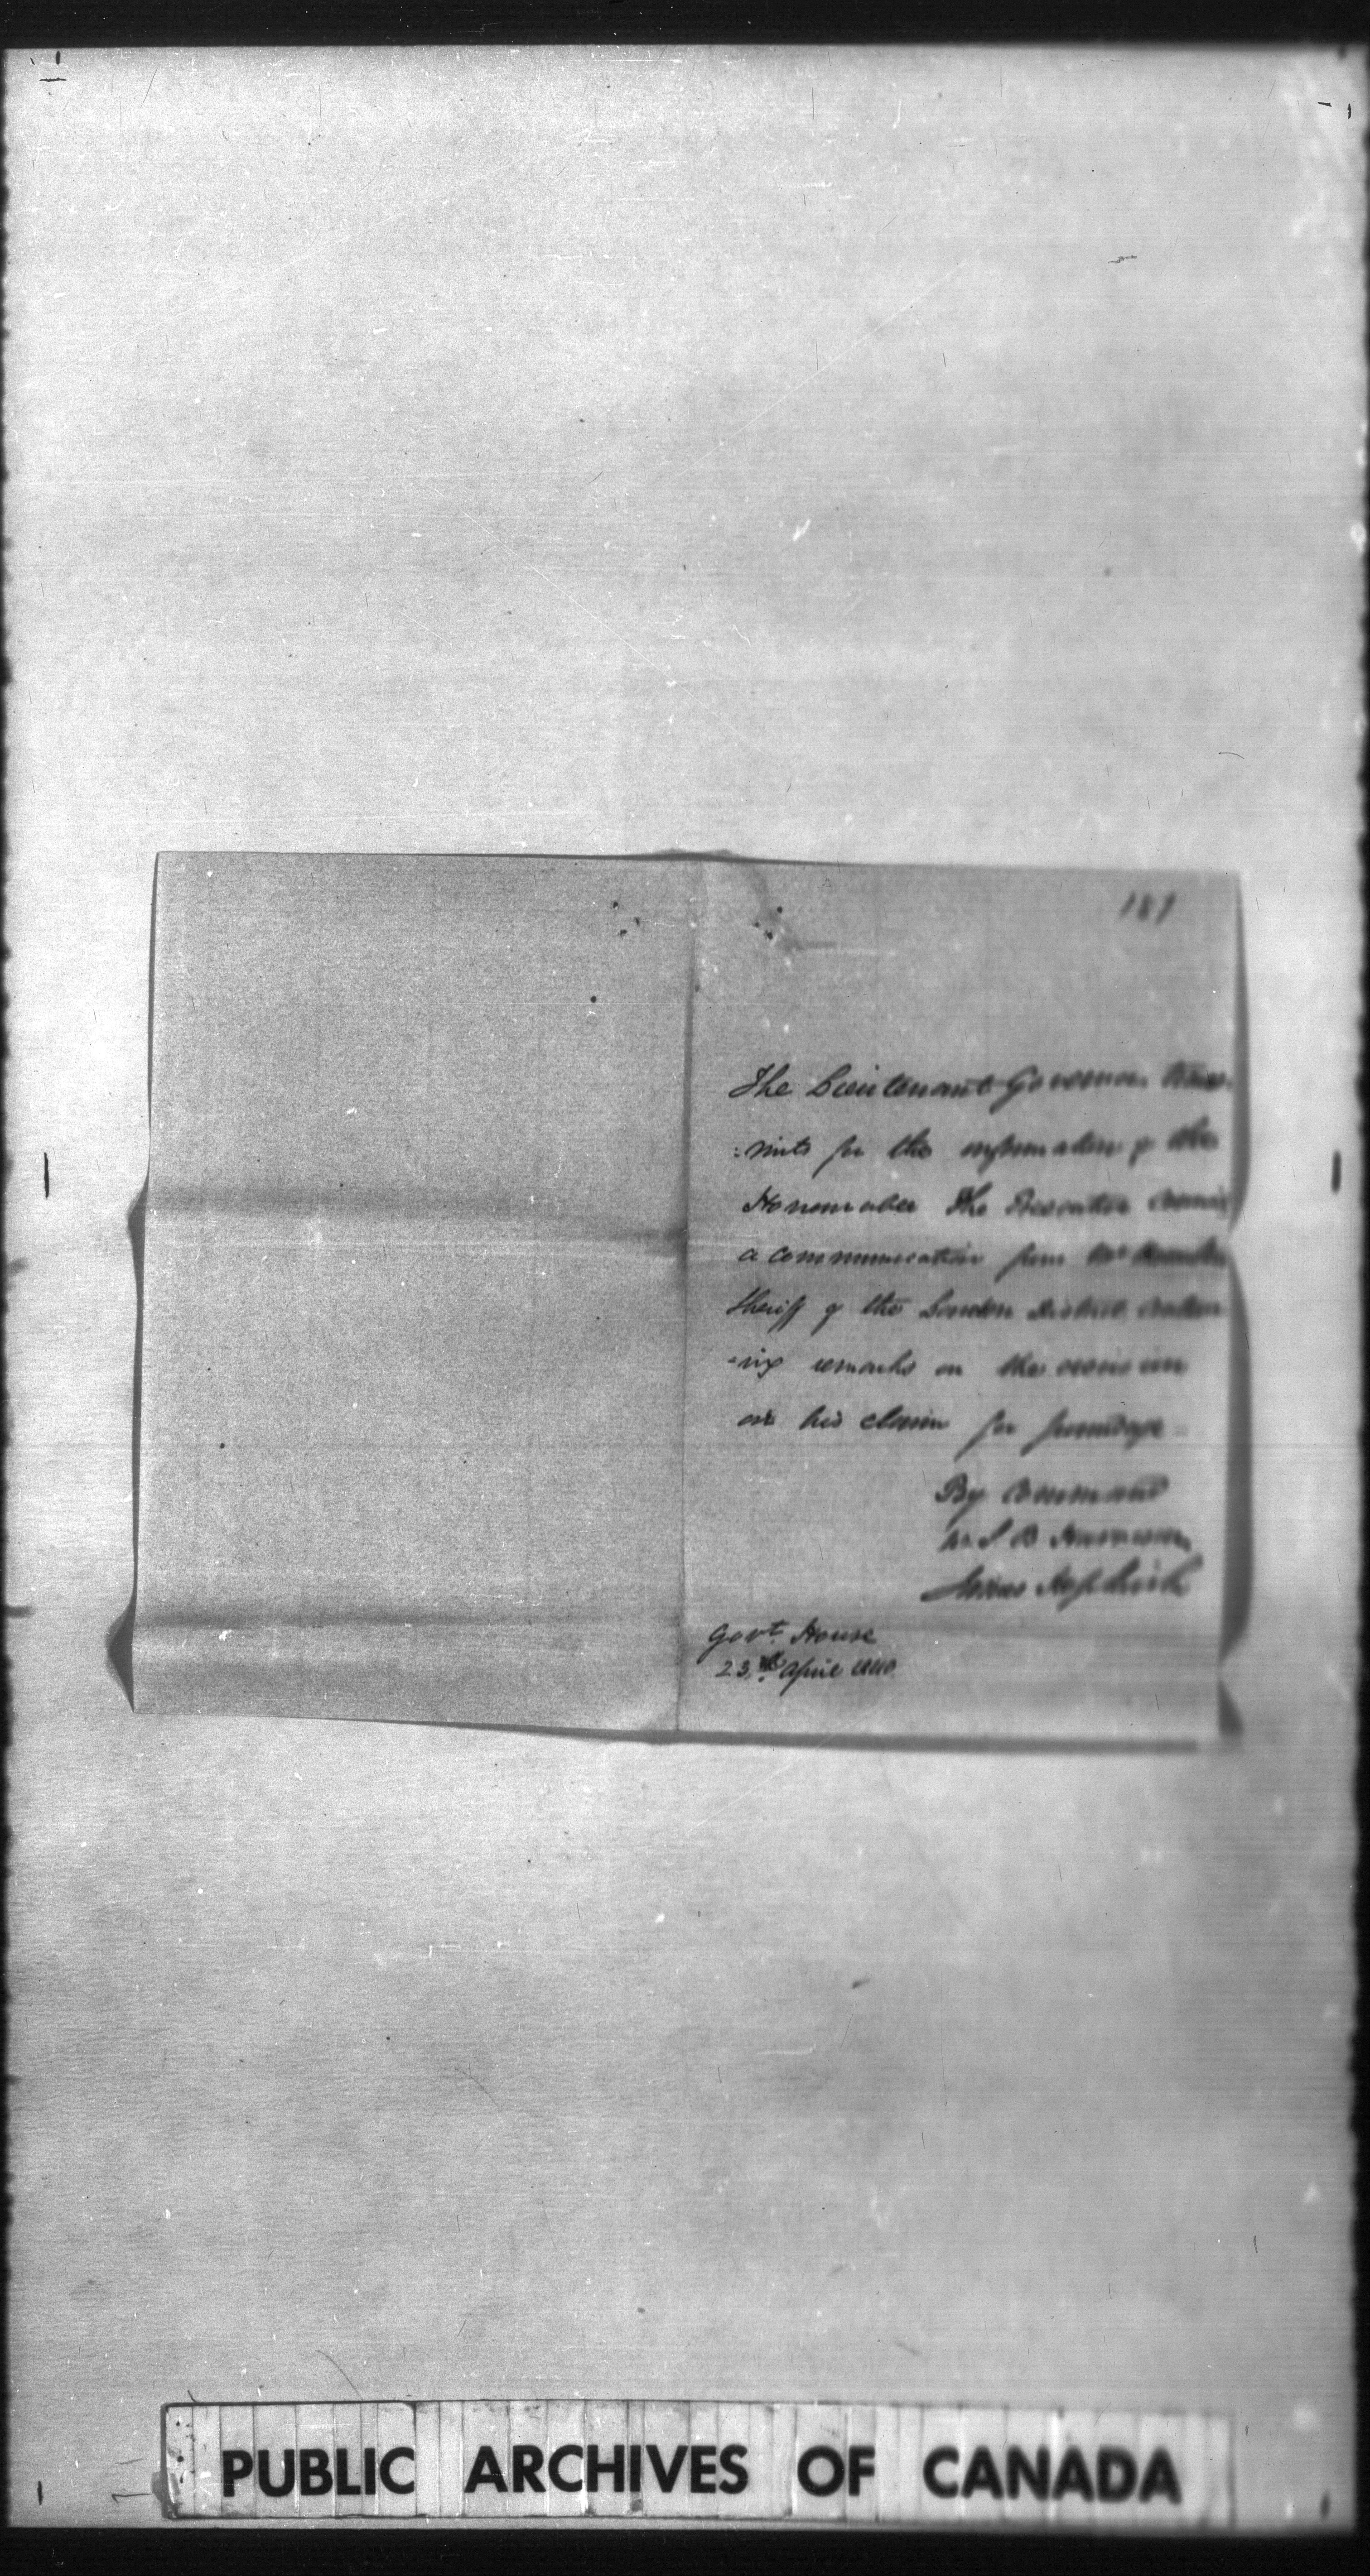 181
The Lieutenant Governor trans
:mits for the information of the
Honourable The Executive Council
a communication from Mr Hamilton
Sheriff of the London District
-ing remarks on the decision
on his claim for poundage
By Command
S B Harrison
Govt. House
23rd April 1840
PUBLIC ARCHIVES OF CANADA